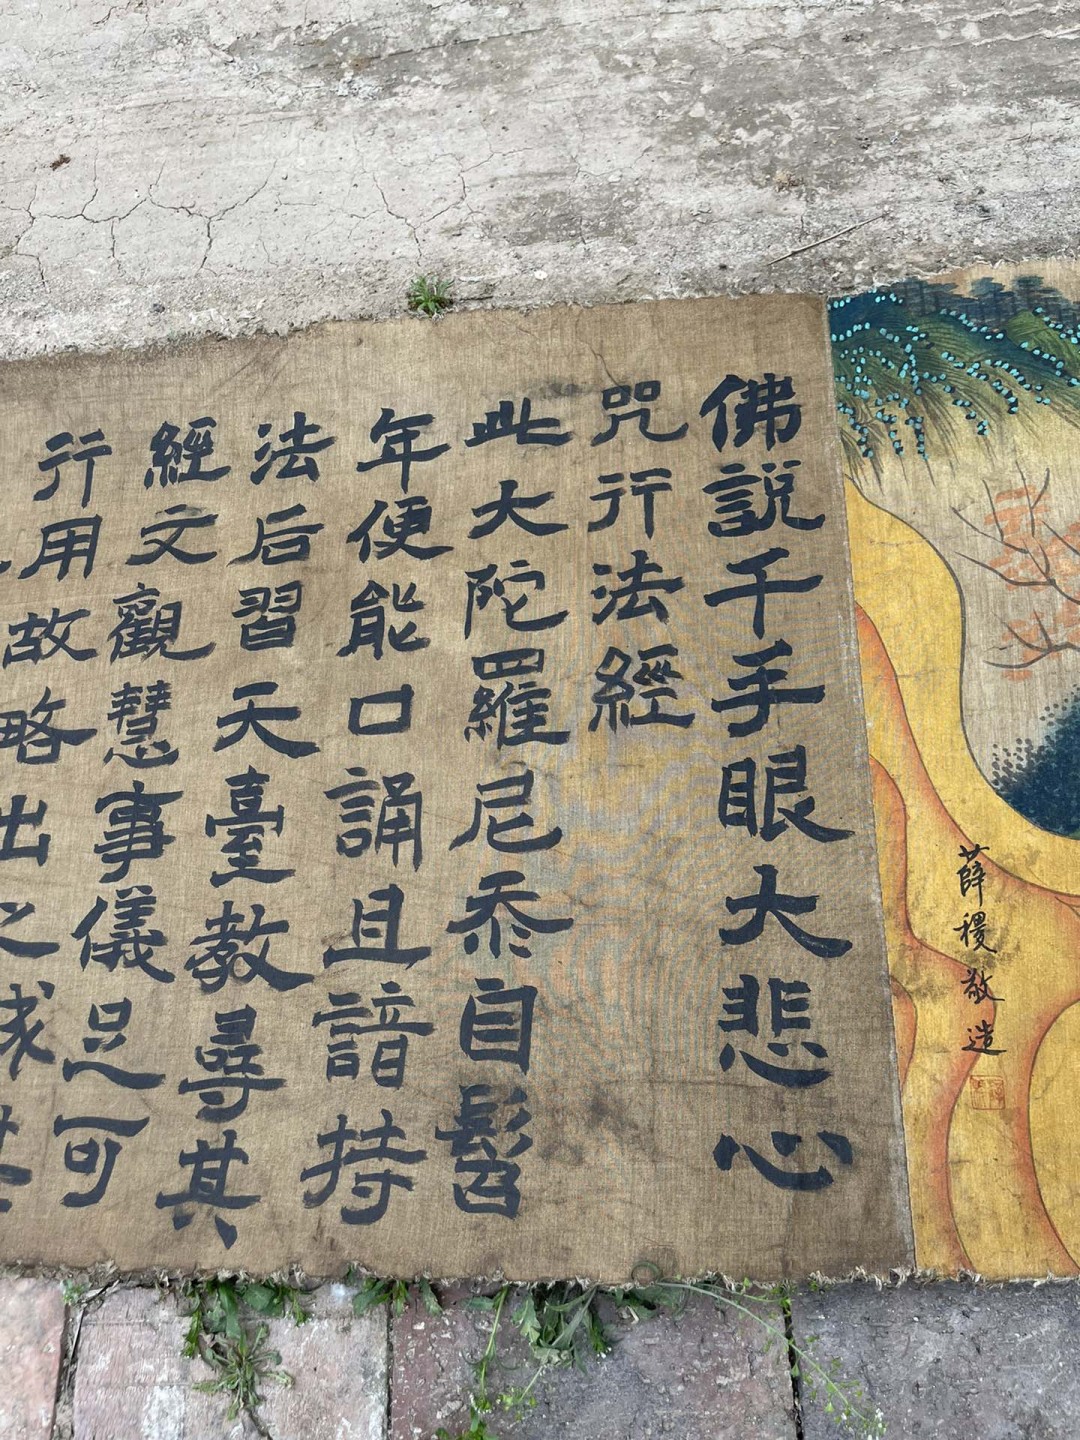 薛稷敬造
佛説千手眼大悲心
咒行法經
此大陀羅尼忝自髫
年便能口誦且諳持
法后習天臺教尋其
經文觀慧事儀足可
行用故略出之